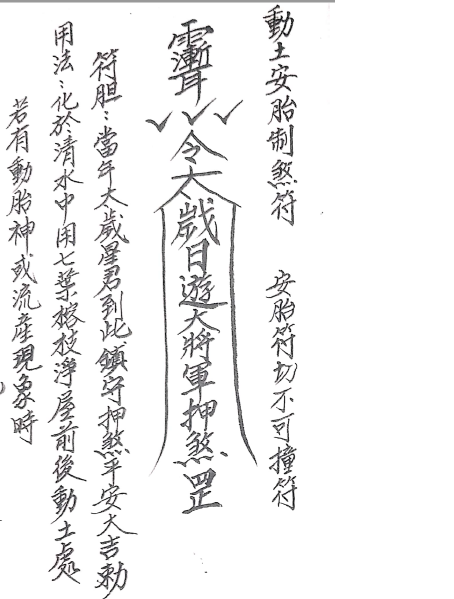 動土安胎制煞符　安胎符切不可撞符
令大歲日遊大將軍押煞罡
符胆：當年太歲星君到此鎮守押煞平安大吉勅
用法：化於清水中用七葉榕枝淨屋前後動土處
若有動胎神或流產現象時